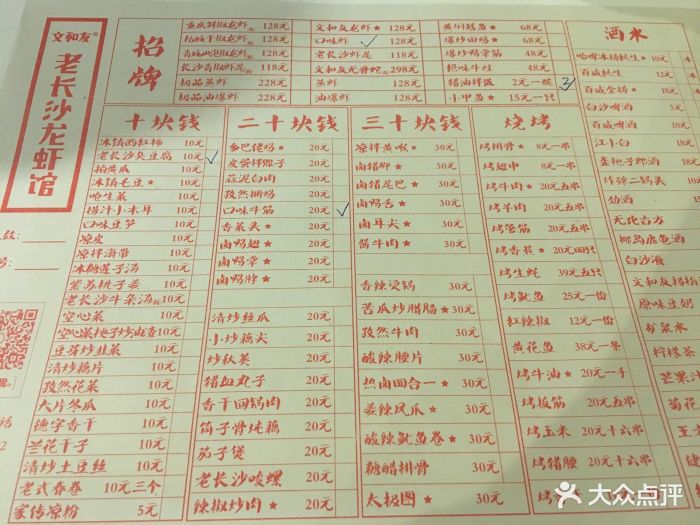 文和友
老长沙龙虾馆
招牌
128元
128元
128元
128元
极品蒸虾 128元
极品油爆虾 128元
文和友龙虾★ 128元
口味虾 128元
老长沙虾尾 128元
298元
蒸虾 128元
油爆虾 128元
68元
爆炒田鸡★ 68元
爆炒鸭掌筋 48元
48元
猪油拌饭 2元一碗
小甲鱼★ 15元一只
十块钱
冰镇西红柿 10元
老长沙臭豆腐 10元
拍黄瓜 10元
冰镇毛豆★ 10元
呛生菜 10元
捞汁小木耳 10元
口味豆笋 10元
凉皮 10元
凉拌海带 10元
冰糖莲子汤 10元
紫苏桃子姜 10元
老长沙牛杂汤 10元
空心菜 10元
空心菜梗子炒油渣 10元
豆芽炒韭菜 10元
清炒藕片 10元
孜然花菜 10元
大片冬瓜 10元
德字香干 10元
兰花干子 10元
清炒土豆丝 10元
老式春卷 10元三个
家传凉粉 5元
二十块钱
乡巴佬鸡★ 20元
皮蛋拌擂子 20元
蒜泥白肉 20元
孜然捆鸡 20元
口味牛筋 20元
香菜头★ 20元
卤鸭翅★ 20元
卤鸭掌★ 20元
卤鸭脖★ 20元
清炒丝瓜 20元
小炒藕尖 20元
炒秋英 20元
猪血丸子 20元
香干回锅肉 20元
筒子骨炖藕 20元
茄子煲 20元
老长沙唆螺 20元
辣椒炒肉★ 20元
三十块钱
凉拌黄喉★ 30元
卤猪脚★ 30元
卤猪尾巴★ 30元
卤鸭舌★ 30元
卤耳尖★ 30元
酱牛肉★ 30元
香辣烫锅 30元
苦瓜炒腊肠★ 30元
孜然牛肉 30元
酸辣腰片 30元
热卤四合一★ 30元
姜辣凤爪★ 30元
酸辣鱿鱼卷★ 30元
糖醋排骨 30元
太极图★ 30元
烧烤
烤排骨★ 8元一串
烤翅中 8元一串
烤牛肉★ 20元五串
烤羊肉 20元五串
烤脊筋 20元五串
烤香蕉★ 20元四只
烤生蚝 39元五只
烤鱿鱼 25元一份
红辣椒 12元一份
黄花鱼 38元一条
烤牛油★ 20元一手
烤板筋 20元五串
烤玉米 20元十六串
烤猪腰 20元十六串
酒水
10元
百威纯生 12元
百威金樽★ 18元
白沙啤酒
百威啤酒
江小白
炸弹二锅头
劲酒
椰岛鹿龟酒
白沙液
原味豆奶
矿泉水
柠檬茶
大众点评